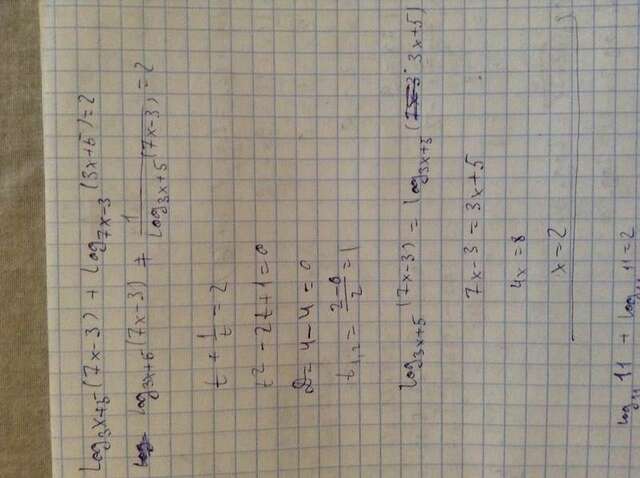 log₃ₓ₊₅(7x-3) + log₇ₓ₋₃(3x+5)=2
log₃ₓ₊₅(7x-3) + 1/log₃ₓ₊₅(7x-3) =2
t + 1/t = 2
t² - 2t + 1 = 0
D = 4 - 4 = 0
t₁,₂ = (2-0)/2 = 1
log₃ₓ₊₅(7x-3) = log₃ₓ₊₅(3x+5)
7x-3 = 3x+5
4x = 8
x = 2
log₁₁ 11 + log₁₁ 11 = 2